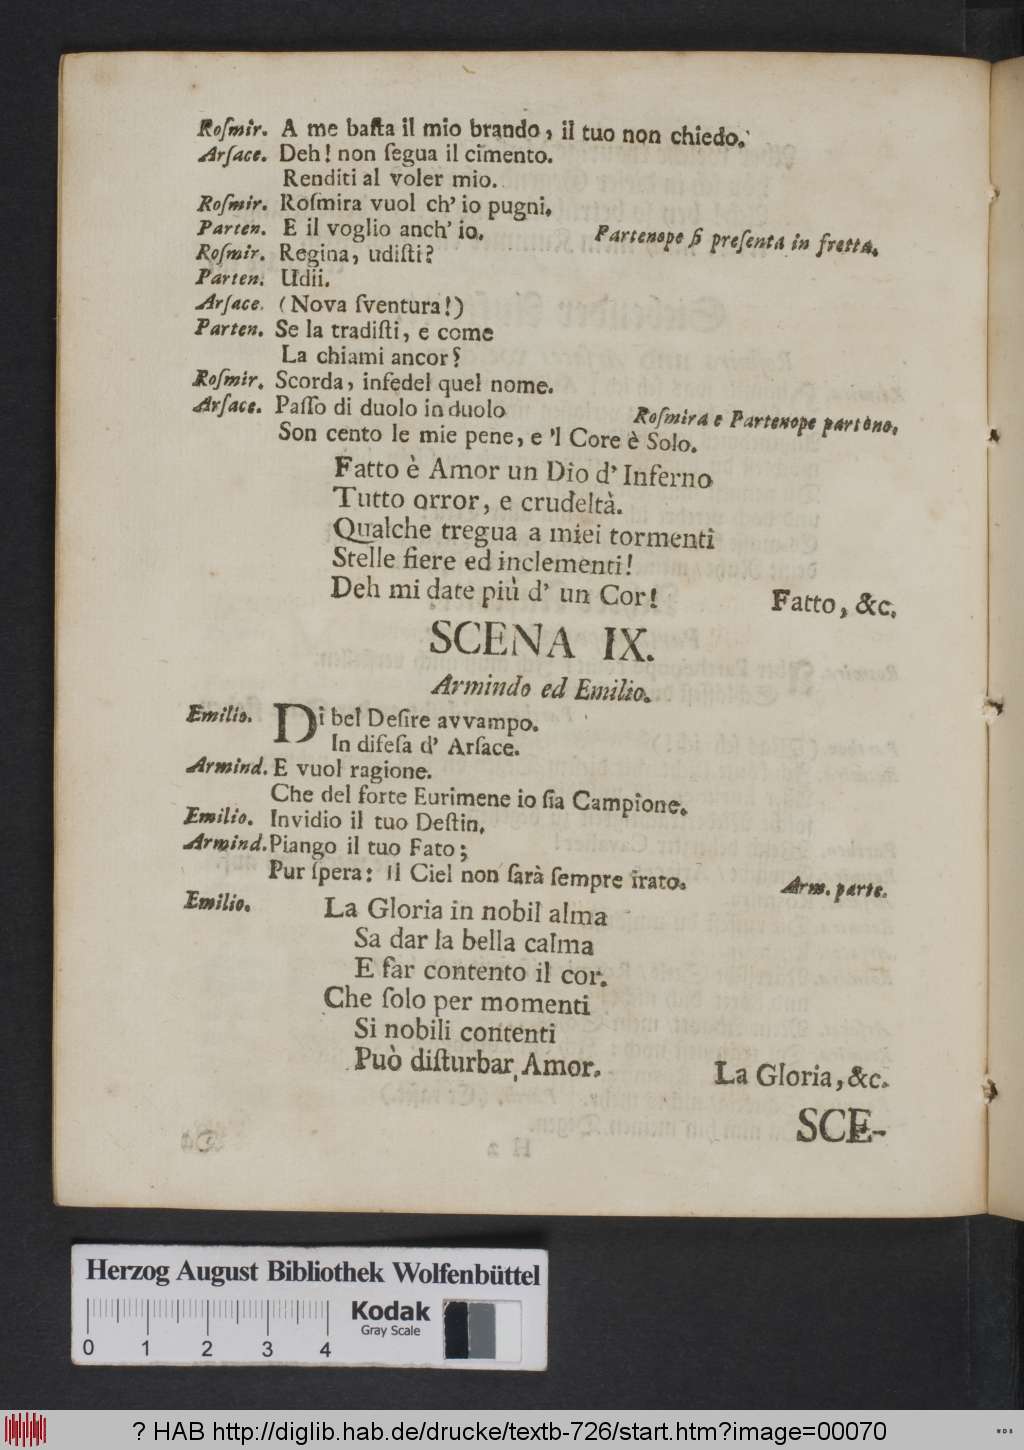 Roſmir. A me baſta il mio brando, il tuo non chiedo.
Arſace. Deh! non ſegua il cimento.
Renditi al voler mio.
Roſmir. Roſmira vuol ch' io pugni.
Parten. E il voglio anch' io. Partenope ſi preſenta in fretta.
Roſmir. Regina, udiſti?
Parten. Udii.
Arſace. (Nova ſventura!)
Parten. Se la tradiſti, e come
La chiami ancor?
Roſmir. Scorda, infedel quel nome.
Arſace. Paſſo di duolo in duolo Roſmira e Partenope partono.
Son cento le mie pene, e 'l Core è Solo.
Fatto è Amor un Dio d' Inferno
Tutto orror, e crudeltà.
Qualche tregua a miei tormenti
Stelle fiere ed inclementi!
Deh mi date più d' un Cor! Fatto, &c.
SCENA IX.
Armindo ed Emilio.
Emilio. Di bel Deſire avvampo.
In difeſa d' Arſace.
Armind. E vuol ragione.
Che del forte Eurimene io ſia Campione.
Emilio. Invidio il tuo Deſtin.
Armind. Piango il tuo Fato;
Pur ſpera: Il Ciel non ſarà ſempre irato. Arm. parte.
Emilio. La Gloria in nobil alma
Sa dar la bella calma
E far contento il cor.
Che ſolo per momenti
Si nobili contenti
Può diſturbar Amor. La Gloria, &c.
SCE-
Herzog August Bibliothek Wolfenbüttel
Kodak
Gray Scale
0 1 2 3 4
? HAB http://diglib.hab.de/drucke/textb-726/start.htm?image=00070